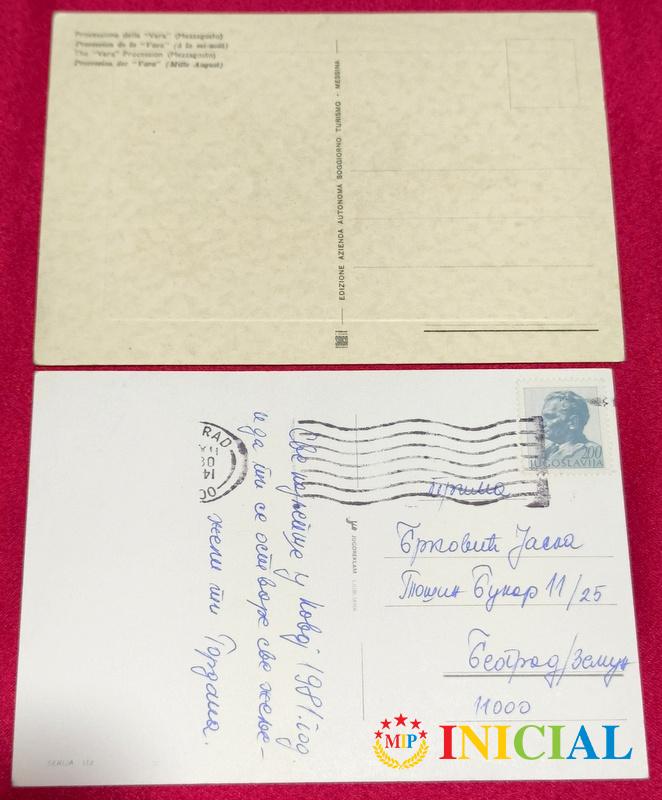 Processione della "Vara" (Mezzagosto)
Procession de la "Vara" (à la mi-août)
The "Vara" Procession (Mezzagosto)
Procession der "Vara" (Mitte August)
EDIZIONE AZIENDA AUTONOMA SOGGIORNO TURISMO - MESSINA
RAD
200
JUGOSLAVIJA
Све најлепше у Новој 1981. год.
и да ти се остваре све жеље-
жели ти Гордана.
JUGOREKLAM LJUBLJANA
прима
Брковић Јасна
Тошин Бунар 11/25
Београд/Земун
11000
SERIJA 112
MIP INICIAL